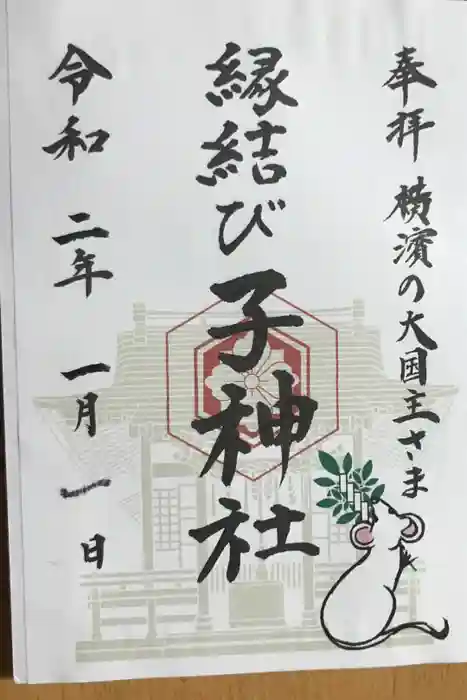 奉拝 横濱の大国主さま
縁結び子神社
令和 二年 一月 一日